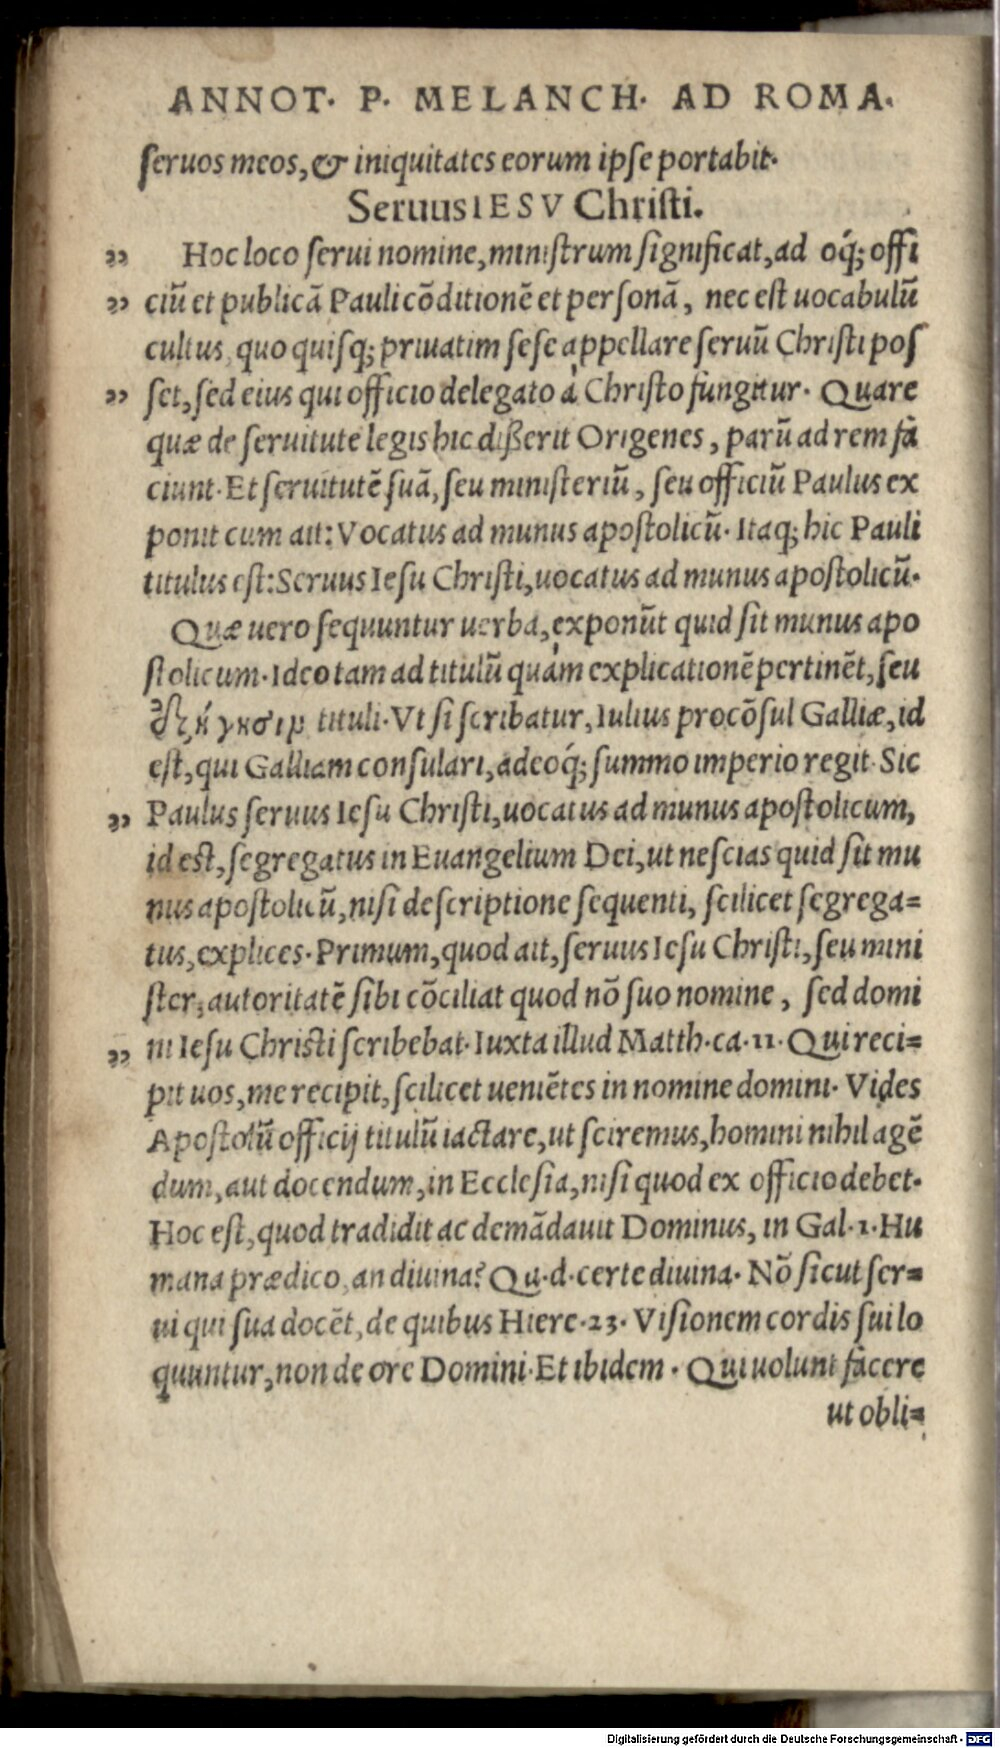 ANNOT. P. MELANCH. AD ROMA.
ſeruos meos, & iniquitates eorum ipſe portabit.
Seruus IESV Chriſti.
„ Hoc loco ſerui nomine, miniſtrum ſignificat, ad oq́; offi
„ ciũ et publicã Pauli cõditionẽ et perſonã, nec eſt uocabulũ
cultus, quo quiſq; priuatim ſeſe appellare ſeruũ Chriſti poſ
„ ſet, ſed eius qui officio delegato à Chriſto fungitur. Quare
quæ de ſeruitute legis hic diſſerit Origenes, parũ ad rem fa
ciunt. Et ſeruitutẽ ſuã, ſeu miniſteriũ, ſeu officiũ Paulus ex
ponit cum ait: Vocatus ad munus apoſtolicũ. Itaq; hic Pauli
titulus eſt: Seruus Ieſu Chriſti, uocatus ad munus apoſtolicũ.
Quæ uero ſequuntur uerba, exponũt quid ſit munus apo
ſtolicum. Ideo tam ad titulũ quàm explicationẽ pertinẽt, ſeu
tituli. Vt ſi ſcribatur, Iulius procõſul Galliæ, id
eſt, qui Galliam conſulari, adeoq́; ſummo imperio regit. Sic
„ Paulus ſeruus Ieſu Chriſti, uocatus ad munus apoſtolicum,
id eſt, ſegregatus in Euangelium Dei, ut neſcias quid ſit mu
nus apoſtolicũ, niſi deſcriptione ſequenti, ſcilicet ſegrega=
tus, explices. Primum, quod ait, ſeruus Ieſu Chriſti, ſeu mini
ſter, autoritatẽ ſibi cõciliat quod nõ ſuo nomine, ſed domi
„ ni Ieſu Chriſti ſcribebat. Iuxta illud Matth. ca. 11. Qui reci=
pit uos, me recipit, ſcilicet ueniẽtes in nomine domini. Vides
Apoſtolũ officij titulũ iactare, ut ſciremus, homini nihil agẽ
dum, aut docendum, in Eccleſia, niſi quod ex officio debet.
Hoc eſt, quod tradidit ac demãdauit Dominus, in Gal. 1. Hu
mana prædico, an diuina? Qu. d. certe diuina. Nõ ſicut ſer=
ui qui ſua docẽt, de quibus Hiere. 23. Viſionem cordis ſui lo
quuntur, non de ore Domini. Et ibidem. Qui uolunt facere
ut obli=
Digitalisierung gefördert durch die Deutsche Forschungsgemeinschaft - DFG